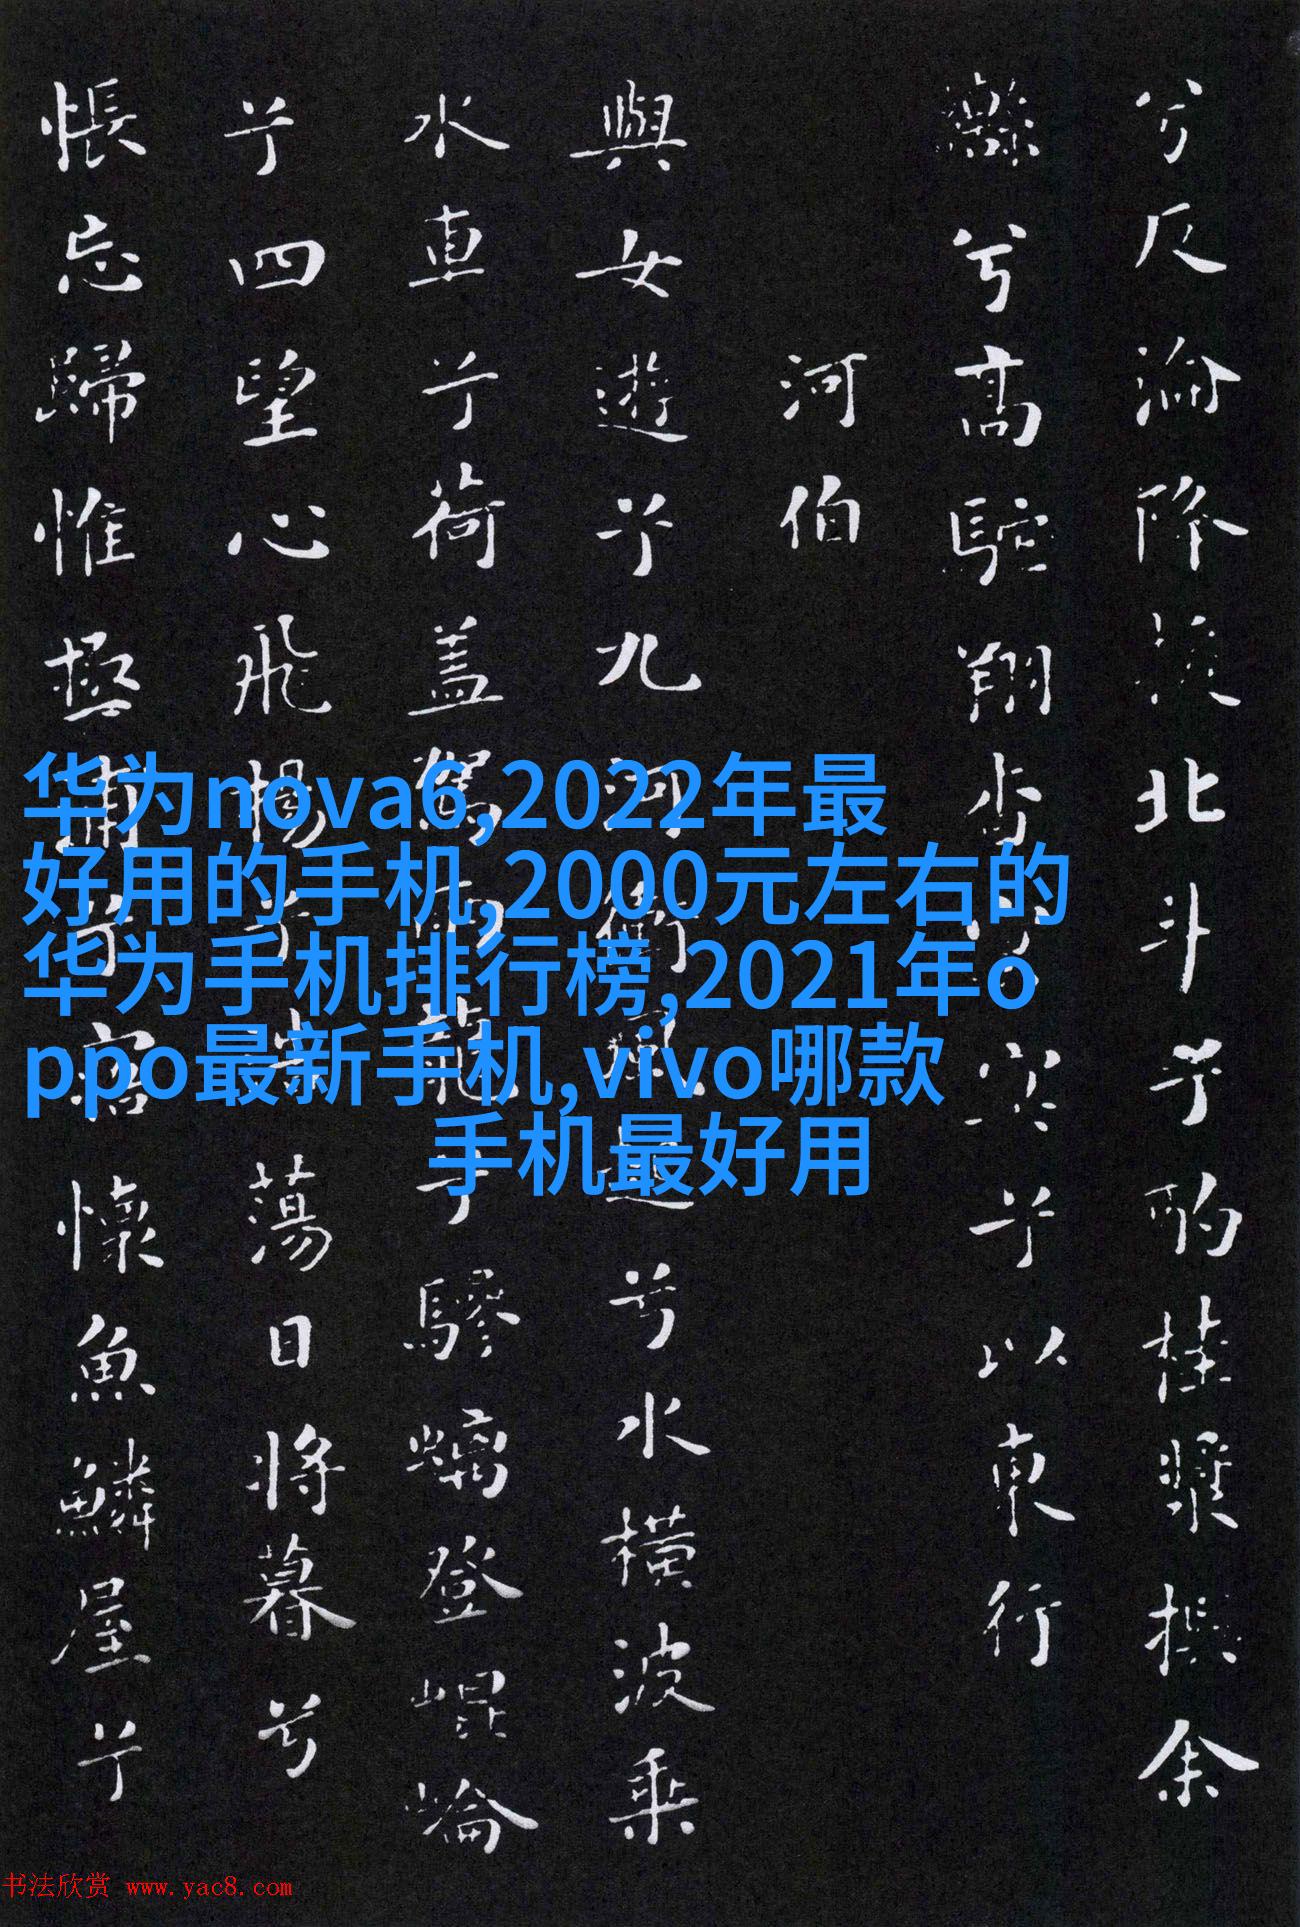 兮反淪降援北斗兮酌桂漿撰余
轡兮高駝翔杳冥冥兮以東行
河伯
與女遊兮九河衝風起兮水橫波乘
水車兮荷蓋駕兩龍兮驂螭登崐崘
兮四望心飛揚兮浩蕩日將暮兮
悵忘歸惟極浦兮寤懷魚鱗屋兮
华为nova6,2022年最
好用的手机,2000元左右的
华为手机排行榜,2021年o
ppo最新手机,vivo哪款
手机最好用
书法欣赏 www.yac8.com